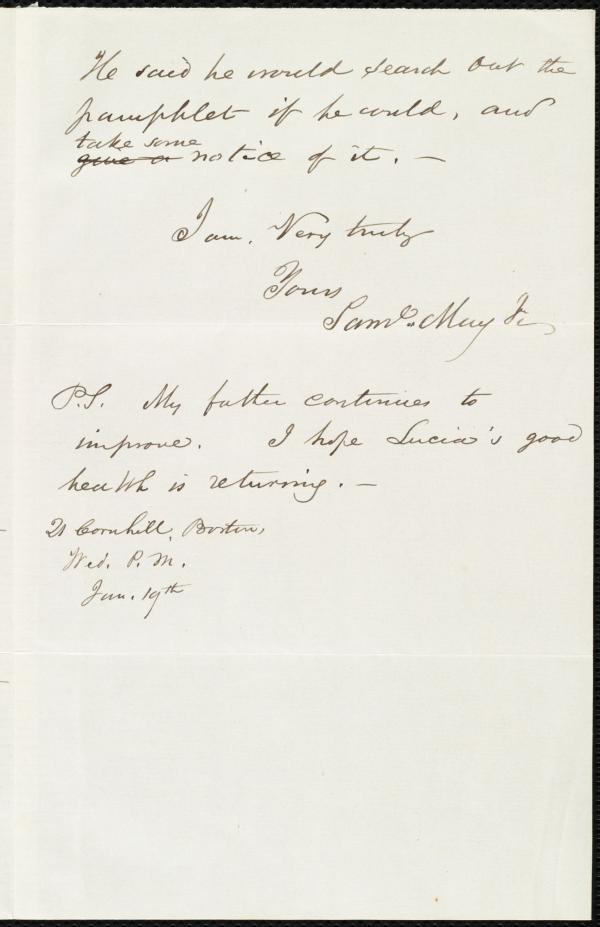 He said he would search out the
pamphlet if he could, and
take some
give a notice of it. —
I am, Very truly
Yours
Saml. May Jr.
P.S. My father continues to
improve. I hope Lucia's good
health is returning. —
21 Cornhill, Boston,
Wed. P.M.
Jan. 19th